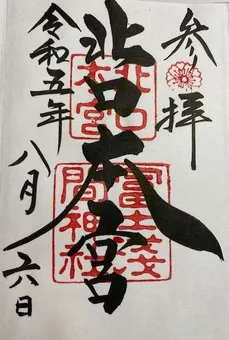 参拝
北口本宮
北口
本宮
冨士浅
間神社
令和五年
八月六日